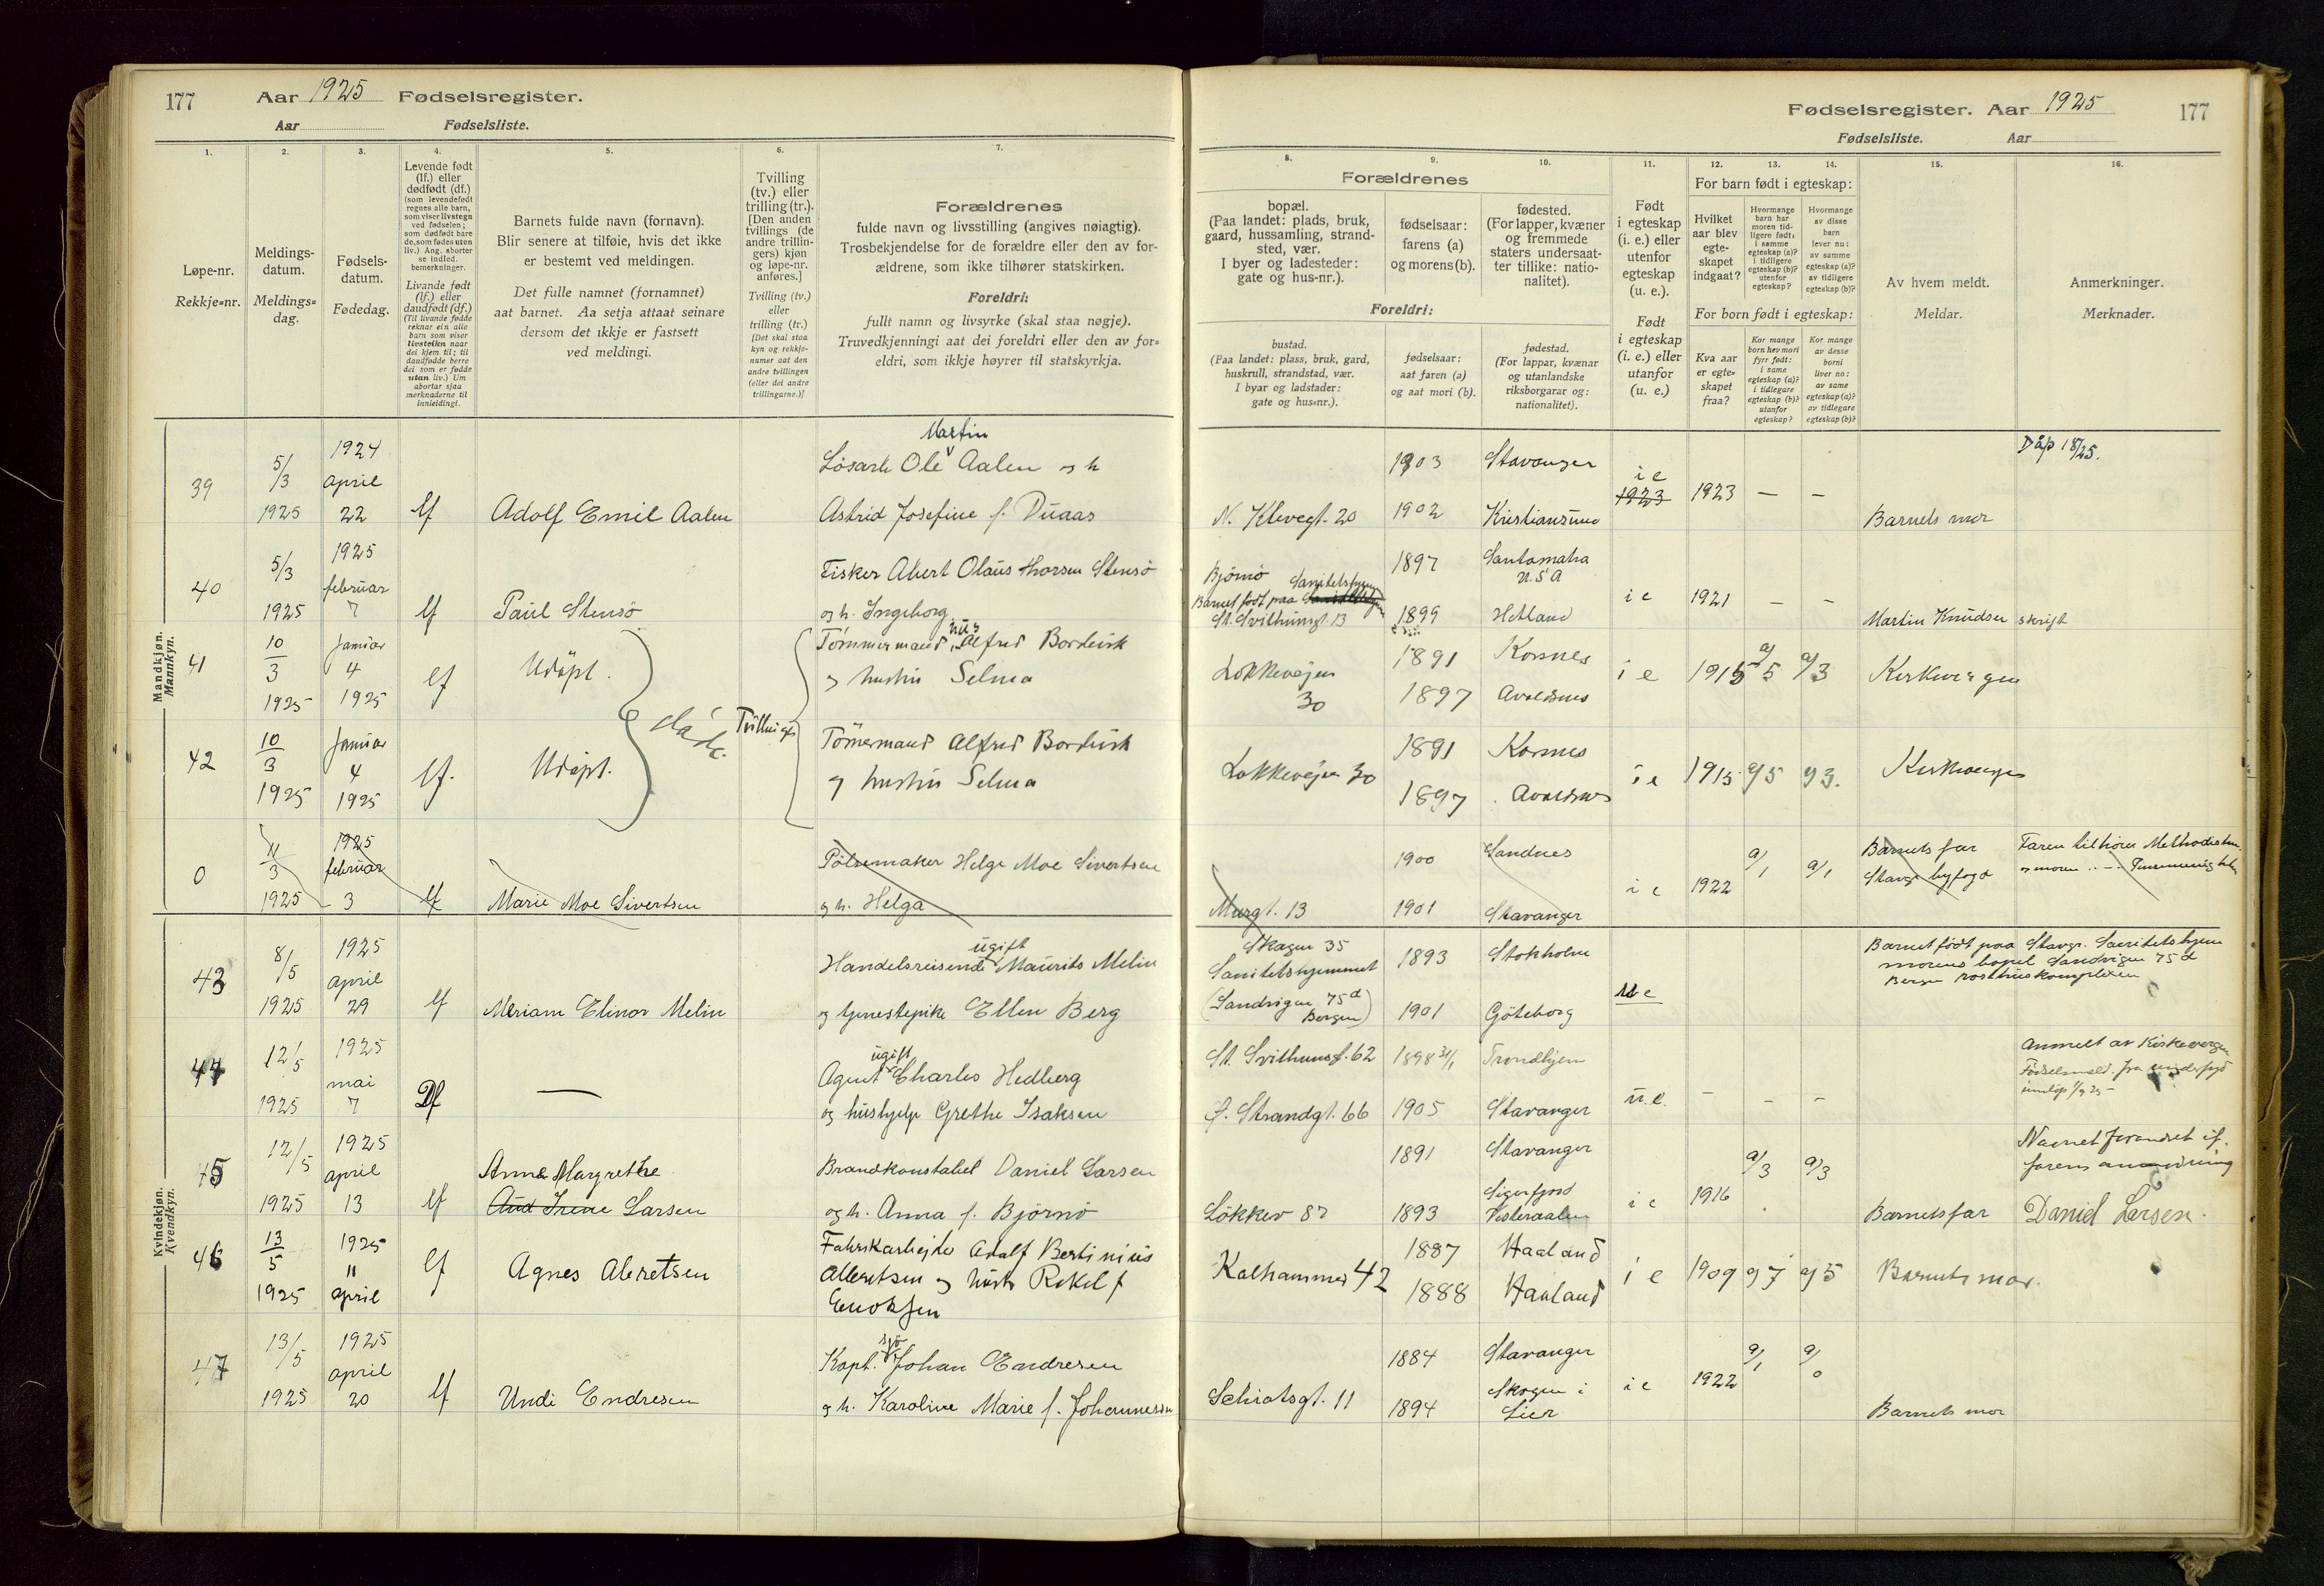 177 Aar 1925 Fødselsregister.
Aar Fødselsliste.
Fødselsregister. Aar 1925 177
Fødselsliste. Aar
1. 2. 3. 4. 5. 6. 7.
Løpe-nr.
Rekkje-nr.
Meldings-
datum.
Meldings-
dag.
Fødsels-
datum.
Fødedag.
Levende født
(lf.) eller
dødfødt (df.)
(som levendefødt
regnes alle barn,
som viser livstegn
ved fødselen;
som dødfødt bare
de, som fødes uten
liv.) Ang. aborter
se indled.
bemerkninger.
Livande født
(lf.) eller
daudfødt (df.)
(Til livande fødde
reknar ein alle
barn som viser
livsteikn naar
dei kjem til; til
daudfødde berre
dei som er fødde
utan liv.) Um
abortar sjaa
merknaderne til
innleidingi.
Barnets fulde navn (fornavn).
Blir senere at tilføie, hvis det ikke
er bestemt ved meldingen.
Det fulle namnet (fornamnet)
aat barnet. Aa setja attaat seinare
dersom det ikkje er fastsett
ved meldingi.
Tvilling
(tv.) eller
trilling (tr.).
[Den anden
tvillings (de
andre trillin-
gers) kjøn
og løpe-nr.
anføres.]
Tvilling (tv.)
eller
trilling (tr.)
[Det skal staa
kyn og rekkje-
numer aat den
andre tvillingen
(eller dei andre
trillingarne.)]
Forældrenes
fulde navn og livsstilling (angives nøiagtig).
Trosbekjendelse for de forældre eller den av for-
ældrene, som ikke tilhører statskirken.
Foreldri:
fullt namn og livsyrke (skal staa nøgje).
Truvedkjenningi aat dei foreldri eller den av for-
eldri, som ikkje høyrer til statskyrkja.
8. 9. 10. 11. 12. 13. 14. 15. 16.
Forældrenes
bopæl.
(Paa landet: plads, bruk,
gaard, hussamling, strand-
sted, vær.
I byer og ladesteder:
gate og hus-nr.).
fødselsaar:
farens (a)
og morens (b).
fødested.
(For lapper, kvæner
og fremmede
staters undersaat-
ter tillike: natio-
nalitet).
Foreldri:
bustad.
(Paa landet: plass, bruk, gard,
huskrull, strandstad, vær.
I byar og ladstader:
gate og hus-nr.).
fødselsaar:
aat faren (a)
og aat mori (b).
fødestad.
(For lappar, kvænar
og utanlandske
riksborgarar og:
nationalitet).
Født
i egteskap
(i. e.) eller
utenfor
egteskap
(u. e.).
Født
i egteskap
(i. e.) eller
utanfor
(u. e.)
For barn født i egteskap:
Hvilket
aar blev
egte-
skapet
indgaat?
Hvormange
barn har
moren tid-
ligere født:
i samme
egteskap (a)?
i tidligere
egteskap (b)?
utenfor
egteskap?
Hvormange
av disse
barn
lever nu:
av samme
egteskap (a)?
av tidligere
egteskap (b)?
For born født i egteskap:
Kva aar
er egte-
skapet
fraa?
Kor mange
born hev mori
fyrr født:
i same
egteskap (a)?
i tidlegare
egteskap (b)?
utanfor
egteskap?
Kor mange
av desse
borni
liver no:
av same
egteskap (a)?
av tidlegare
egteskap (b)?
Av hvem meldt.
Meldar.
Anmerkninger.
Merknader.
Mandkjøn.
Mannkyn.
39 5/3 1925 1924 april 22 lf Adolf Emil Aalen
Martin
Løsarb Ole Aalen og h
Astrid Josefine f. Duaas
N. Klevegt. 20 1903 Stavanger
1902 Kristiansund
i e
1923 1923 — — Barnets mor Dåp 18/25.
40 5/3 1925 1925 februar 7 lf Paul Stensø
Fisker Abert Olaus Thorsen Stensø
og h. Ingeborg
Bjørnø Sanitetshjem
Barnet født paa
St. Svithunsgt. 13
1897 Santomaha
U.S A
1899 Hetland
i e 1921 – – Martin Knudsen skrigt
41 10/3 1925 Januar 4 1925 lf Udøpt.
Tømmermand Alfred Bordevik
og hustru Selma
Løkkeveien
30
1891 Kornes
1897 Avaldsnes
i e 1915 a/5 a/3 Kirkevergen
døde. Tvillinger
42 10/3 1925 Januar 4 1925 lf. Udøpt.
Tømermand Alfred Bordevik
og hustru Selma
Løkkevejen 30
1891 Kornes
1897 Avaldsnes
i e 1915 a/5 a/3. Kirkevergen
0 11/3 1925 1925 februar 3 lf Marie Moe Sivertsen
Pølsemaker Helge Moe Sivertsen
og h. Helga
Murgt. 13
1900 Sandnes
1901 Stavanger
i e 1922 a/1 a/1
Barnets far
Stavgr byfogd
Faren tilhører Methodistm.
og moren
Kvindekjøn.
Kvendkyn.
43 8/5 1925 1925 april 29 lf Meriam Elinor Melin
ugift
Handelsreisende Maurits Melin
og tjenestepike Ellen Berg
Skagen 35
Sanitetshjemmet
(Sandvigen 75d
Bergen)
1893 Stokholm
1901 Göteborg
u e
Barnet født paa Stavgr. Sanitetshjem
morens bopel Sandvigen 75d
Bergen
44 12/5 1925 1925 mai 7 Df —
ugift
Agent Charles Hedberg
og hushjelp Grethe Isaksen
St. Svithunsgt. 62 1898 31/1 Trondhjem
Ø. Strandgt. 66 1905 Stavanger
u.e. – – –
Anmelt av Kirkevergen
Fødselsmeld. fra
45 12/5 1925 1925 april 13 lf
Anna Margrethe
Aud Irene Larsen
Brandkonstabel Daniel Larsen
og h. Anna f. Bjørnø
Løkkev 87
1891 Stavanger
1893 Sigerfjord
Vesteraalen
i e 1916 a/3 a/3 Barnets far
Navnet forandret if.
farens anmodning
Daniel Larsen.
46 13/5 1925 1925 11 april lf Agnes Aleretsen
Fabrikarbejder Adolf Bertinius
Alleretsen og hustr Rakel f
Enoksen
Kalhammer 42
1887 Haaland
1888 Haaland
i e 1909 a/7 a/5 Barnets mor.
47 13/5 1925 1925 april 20 lf Undi Endresen
sjø
Kapt. Johan Endresen
og h. Karoline Marie f. Johannesen
Schiøtsgt. 11
1884 Stavanger
1894 Skogen i
Lier
i e 1922 a/1 a/0 Barnets mor